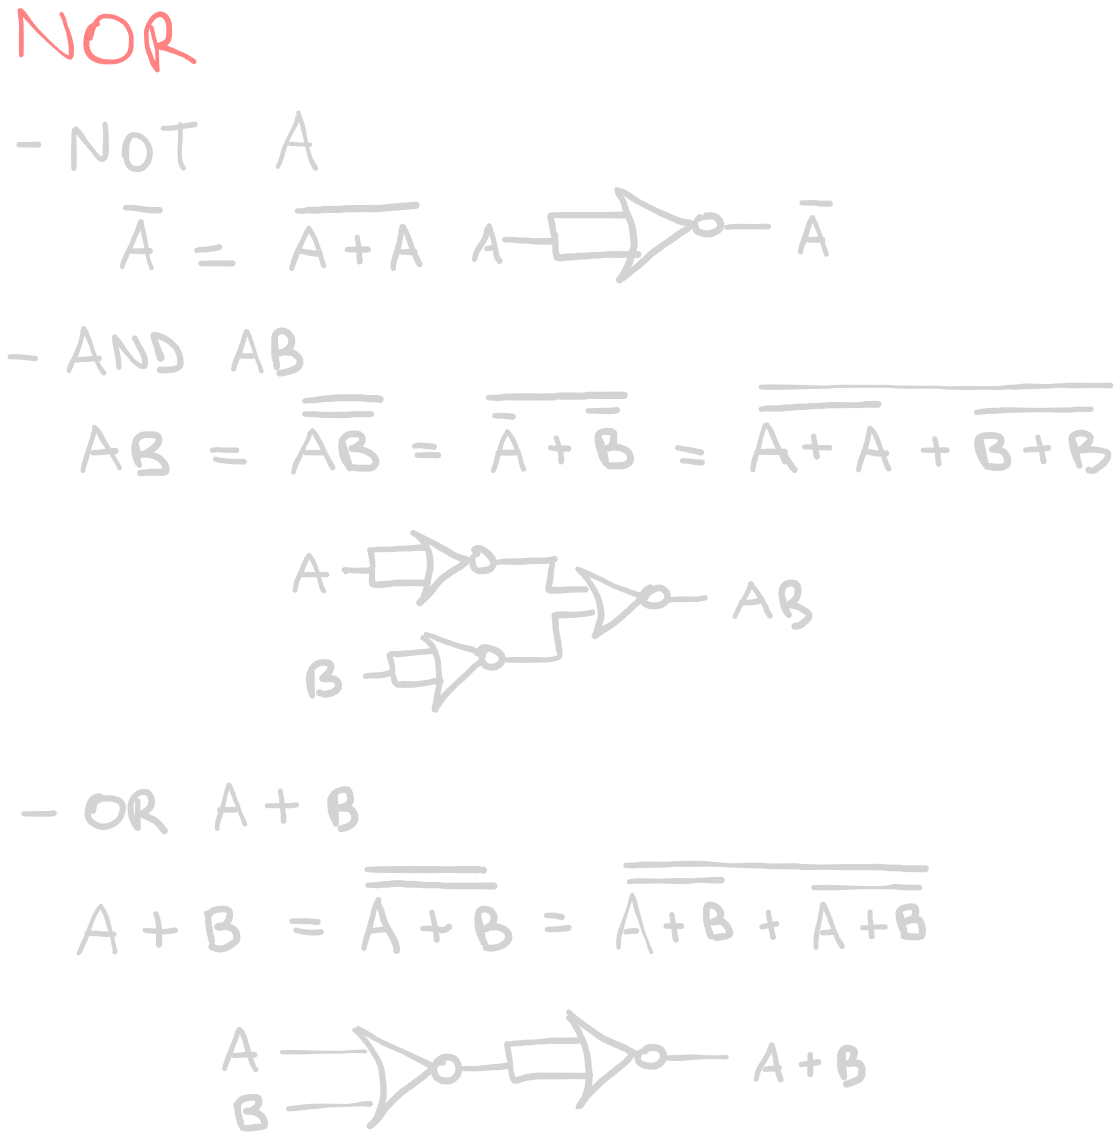 NOR
- NOT A
A̅ = \overline{A + A} A A̅
- AND AB
AB = \overline{\overline{AB}} = \overline{\overline{A} + \overline{B}} = \overline{\overline{A + A} + \overline{B + B}}
A
AB
B
- OR A + B
A + B = \overline{\overline{A + B}} = \overline{\overline{A + B} + \overline{A + B}}
A
A + B
B